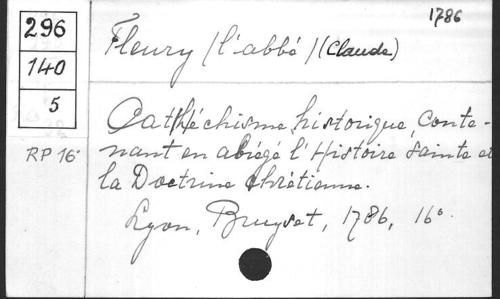 1786
296
140
5
RP 16°
Fleury /l'abbé/ (Claude)
Cathéchisme historique, conte-
nant en abrégé l'Histoire Sainte et
la Doctrine chrétienne.
Lyon, Bruyset, 1786, 16°.